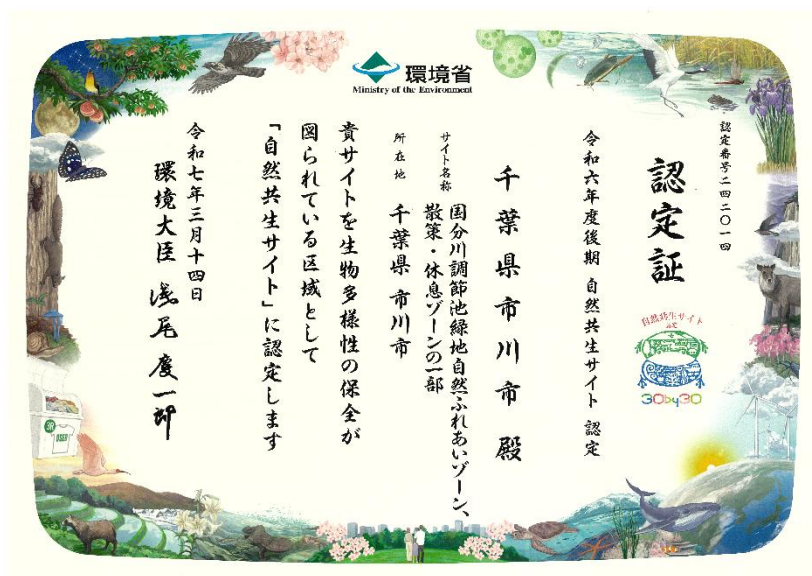 環境省
Ministry of the Environment
認定番号二四二〇一四
認定証
自然共生サイト
認定
30by30
令和六年度後期 自然共生サイト 認定
千葉県市川市 殿
サイト名称
国分川調節池緑地自然ふれあいゾーン、
散策・休息ゾーンの一部
所在地
千葉県 市川市
貴サイトを生物多様性の保全が
図られている区域として
「自然共生サイト」に認定します
令和七年三月十四日
環境大臣 浅尾慶一郎
3R
USED